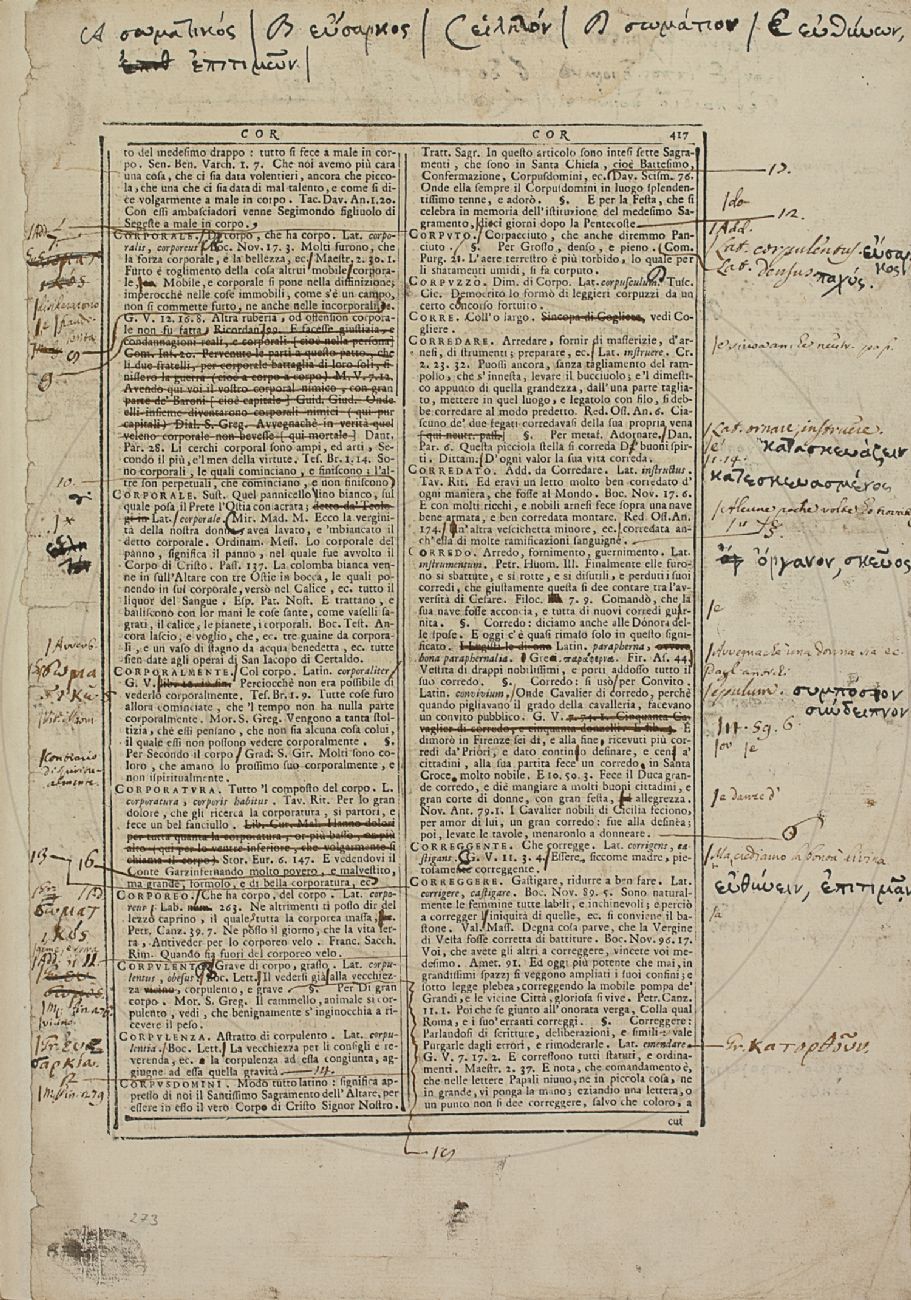 A σωματικός / B εὔσαρκος / C εἰλητόν / D σωμάτιον / E εὐθύνων,
ἐπιτιμῶν /
COR
COR 417
to del medesimo drappo : tutto si fece a male in cor-
po. Sen. Ben. Varch. 1. 7. Che noi avemo più cara
una cosa, che ci sia data volentieri, ancora che picco-
la, che una che ci sia data di mal talento, e come si di-
ce volgarmente a male in corpo. Tac. Dav. An. 1. 20.
Con essi ambasciadori venne Segimondo figliuolo di
Segeste a male in corpo.
CORPORALE. Di corpo, che ha corpo. Lat. corpo-
ralis, corporeus. Boc. Nov. 17. 3. Molti furono, che
la forza corporale, e la bellezza, ec. Maestr. 2. 30. 1.
Furto è toglimento della cosa altrui mobile corpora-
le. Mobile, e corporale si pone nella difinizione,
imperocchè nelle cose immobili, come s'è un campo,
non si commette furto, ne anche nelle incorporali.
G. V. 12. 16. 8. Altra ruberia, od offension corpora-
le non fu fatta. Ricordan. 99. E facesse giustizia, e
condannagioni reali, e corporali [cioè nella persona]
Com. Int. 20. Pervenute le parti a questo patto, che
li due fratelli, per corporale battaglia di loro soli, fi-
nissero la guerra (cioè a corpo a corpo) M. V. 7. 12.
Avendo qui voi il vostro corporal nimico, con gran
parte de' Baroni [cioè capitale] Guid. Giud. Onde
elli insieme diventarono corporali nimici (qui pur
capitali) Dial. S. Greg. Avvegnachè in verità quel
veleno corporale non bevesse (qui mortale) Dant.
Par. 28. Li cerchi corporal sono ampi, ed arti, Se-
condo il più, e'l men della virtute. Tes. Br. 1. 14. So-
no corporali, le quali cominciano, e finiscono: l'al-
tre son perpetuali, che cominciano, e non finiscono.
CORPORALE. Sust. Quel pannicello lino bianco, sul
quale posa il Prete l'Ostia consacrata; detto da' Teolo-
gi in Lat. corporale. Mir. Mad. M. Ecco la vergini-
tà della nostra donna avea lavato, e 'mbiancato il
detto corporale. Ordinam. Mess. Lo corporale del
panno, significa il panno, nel quale fue avvolto il
Corpo di Cristo. Pass. 137. La colomba bianca ven-
ne in sull'Altare con tre Ostie in bocca, le quali po-
nendo in sul corporale, versò nel Calice, ec. tutto il
liquor del Sangue. Esp. Pat. Nost. E trattano, e
bailiscono con lor mani le cose sante, come vaselli sa-
grati, il calice, le pianete, i corporali. Boc. Test. An-
cora lascio, e voglio, che, ec. tre guaine da corpora-
li, e un vaso di stagno da acqua benedetta, ec. tutte
sien date agli operai di San Iacopo di Certaldo.
CORPORALMENTE. Col corpo. Latin. corporaliter.
G. V. Perciocchè non era possibile di
vederlo corporalmente. Tes. Br. 1. 9. Tutte cose furo
allora cominciate, che 'l tempo non ha nulla parte
corporalmente. Mor. S. Greg. Vengono a tanta stol-
tizia, che essi pensano, che non sia alcuna cosa colui,
il quale essi non possono vedere corporalmente. §.
Per Secondo il corpo. Grad. S. Gir. Molti sono co-
loro, che amano lo prossimo suo corporalmente, e
non ispiritualmente.
CORPORATURA. Tutto 'l composto del corpo. L.
corporatura, corporis habitus. Tav. Rit. Per lo gran
dolore, che gli ricerca la corporatura, si partorì, e
fece un bel fanciullo. Lib. Cur. Mal. Hanno dolori
per tutta quanta la corporatura, or più basso, or più
alto (qui per lo ventre inferiore, che volgarmente si
chiama il corpo) Stor. Eur. 6. 147. E vedendovi il
Conte Garzinfernando molto povero, e malvestito,
ma grande, formoso, e di bella corporatura, ec.
CORPOREO. Che ha corpo, del corpo. Lat. corpo-
reus. Lab. num. 263. Ne altrimenti ti posso dir del
lezzo caprino, il quale tutta la corporea massa, ec.
Petr. Canz. 39. 7. Ne posso il giorno, che la vita ser-
ra, Antiveder per lo corporeo velo. Franc. Sacch.
Rim. Quando sia fuori del corporeo velo.
CORPULENTO. Grave di corpo, grasso. Lat. corpu-
lentus, obesus. Boc. Lett. Il vedersi già alla vecchiez-
za vicino, corpulento, e grave. §. Per Di gran
corpo. Mor. S. Greg. Il cammello, animale sì cor-
pulento, vedi, che benignamente s'inginocchia a ri-
cevere il peso.
CORPULENZA. Astratto di corpulento. Lat. corpu-
lentia. Boc. Lett. La vecchiezza per li consigli è re-
verenda, ec. e la corpulenza ad essa congiunta, ag-
giugne ad essa quella gravità. 14.
CORPUSDOMINI. Modo tutto latino: significa ap-
presso di noi il Santissimo Sagramento dell'Altare, per
essere in esso il vero Corpo di Cristo Signor Nostro.
Tratt. Sagr. In questo articolo sono intesi sette Sagra-
menti, che sono in Santa Chiesa, cioè Battesimo,
Confermazione, Corpusdomini, ec. Dav. Scism. 76.
Onde ella sempre il Corpusdomini in luogo splenden-
tissimo tenne, e adorò. §. E per la Festa, che si
celebra in memoria dell'istituzione del medesimo Sa-
gramento, dieci giorni dopo la Pentecoste.
CORPUTO. Corpacciuto, che anche diremmo Pan-
ciuto. §. Per Grosso, denso, e pieno. Com.
Purg. 21. L'aere terrestro è più torbido, lo quale per
li sfiatamenti umidi, si fa corputo.
CORPUZZO. Dim. di Corpo. Lat. corpusculum. Tusc.
Cic. Democrito lo formò di leggieri corpuzzi da un
certo concorso fortuito.
CORRE. Coll'o largo. Sincopa di Cogliere, vedi Co-
gliere.
CORREDARE. Arredare, fornir di masserizie, d'ar-
nesi, di strumenti; preparare, ec. Lat. instruere. Cr.
2. 23. 32. Puossi ancora, sanza tagliamento del ram-
pollo, che s'innesta, levare il bucciuolo; e 'l dimesti-
co appunto di quella grandezza, dall'una parte taglia-
to, mettere in quel luogo, e legatolo con filo, si deb-
be corredare al modo predetto. Red. Oss. An. 6. Cia-
scuno de' due fegati corredavasi della sua propria vena
[qui neutr. pass.] §. Per metaf. Adornare. Dan.
Par. 6. Questa picciola stella si correda De' buoni spir-
ti. Dittam. D'ogni valor la sua vita correda.
CORREDATO. Add. da Corredare. Lat. instructus.
Tav. Rit. Ed eravi un letto molto ben corredato d'
ogni maniera, che fosse al Mondo. Boc. Nov. 17. 6.
E con molti ricchi, e nobili arnesi fece sopra una nave
bene armata, e ben corredata montare. Red. Oss. An.
174. Un'altra vescichetta minore, ec. corredata an-
ch'essa di molte ramificazioni sanguigne.
CORREDO. Arredo, fornimento, guernimento. Lat.
instrumentum. Petr. Huom. Ill. Finalmente elle furo-
no sì sbattute, e sì rotte, e sì disutili, e perduti i suoi
corredi, che giustamente questa si dee contare tra l'av-
versità di Cesare. Filoc. 7. 9. Comandò, che la
sua nave fosse acconcia, e tutta di nuovi corredi guer-
nita. §. Corredo: diciamo anche alle Dònora del-
le spose. E oggi c'è quasi rimaso solo in questo signi-
ficato. I Legisti le dicono Latin. parapherna, ovvero
bona paraphernalia. Grec. παραφερνα. Fir. As. 44.
Vestita di drappi nobilissimi, e postoi addosso tutto il
suo corredo. §. Corredo: si usò per Convito.
Latin. convivium. Onde Cavalier di corredo, perchè
quando pigliavano il grado della cavalleria, facevano
un convito pubblico. G. V. 7. 74. 1. Cinquanta Ca-
valier di corredo, e cinquanta donzelli. E lib. 7. E
dimorò in Firenze sei dì, e alla fine, ricevuti più cor-
redi da' Priori, e dato continuo desinare, e cene a'
cittadini, alla sua partita fece un corredo in Santa
Croce molto nobile. E 10. 50. 3. Fece il Duca gran-
de corredo, e diè mangiare a molti buoni cittadini, e
gran corte di donne, con gran festa, ed allegrezza.
Nov. Ant. 79. 1. I Cavalier nobili di Cicilia feciono,
per amor di lui, un gran corredo: fue alla desinèa;
poi, levate le tavole, menaronlo a donneare.
CORREGGENTE. Che corregge. Lat. corrigens, ca-
stigans. G. V. 11. 3. 4. Essere, siccome madre, pie-
tosamente correggente.
CORREGGERE. Gastigare, ridurre a ben fare. Lat.
corrigere, castigare. Boc. Nov. 89. 5. Sono natural-
mente le femmine tutte labili, e inchinevoli; e perciò
a correggere l'iniquità di quelle, ec. si conviene il ba-
stone. Val. Mass. Degna cosa parve, che la Vergine
di Vesta fosse corretta di battiture. Boc. Nov. 96. 17.
Voi, che avete gli altri a correggere, vincete voi me-
desimo. Amet. 91. Ed oggi più potente che mai, in
grandissimi spazzj si veggono ampliati i suoi confini; e
sotto legge plebea, correggendo la mobile pompa de'
Grandi, e le vicine Città, gloriosa si vive. Petr. Canz.
11. 1. Poi che se' giunto all'onorata verga, Colla qual
Roma, e i suo' erranti correggi. §. Correggere:
Parlandosi di scritture, deliberazioni, e simili: vale
Purgarle dagli errori, e rimoderarle. Lat. emendare.
G. V. 7. 17. 2. E corressono tutti statuti, e ordina-
menti. Maestr. 2. 37. E nota, che comandamento è,
che nelle lettere Papali niuno, ne in piccola cosa, ne
in grande, vi ponga la mano; eziandio una lettera, o
un punto non si dee correggere, salvo che coloro, a
cui
13.
12.
Add.
Lat. corpulentus. εὔσαρ-
κος
Lat. densus. παχύς.
Lat. ornare, instruere.
κατασκευάζειν
κατεσκευασμένος
ὄργανον, σκεῦος
epulum. συμπόσιον
σύνδειπνον
εὐθύνειν, ἐπιτιμᾶν
Gr. κατορθοῦν
9
10
13
16
11
12
273